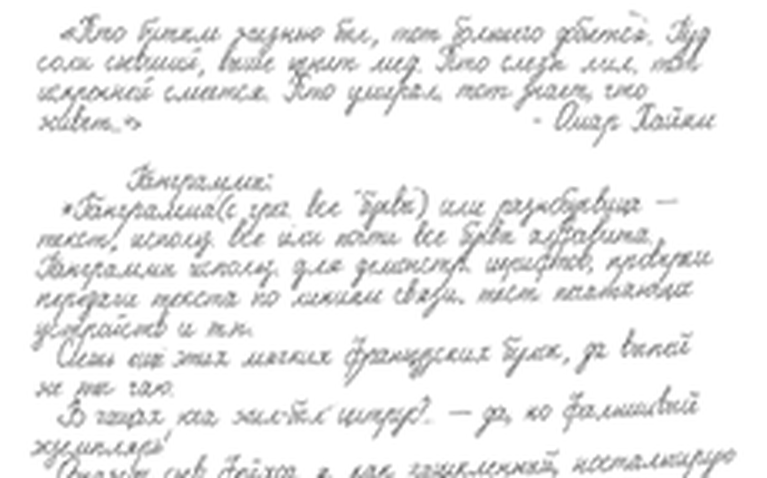 «Кто битым жизнью был, тот большего добьётся. Пуд
соли съевший, выше ценит мёд. Кто слёзы лил, тот
искренней смеётся. Кто умирал, тот знает, что
живёт..»
- Омар Хайям
Панграммы:
"Панграмма (с греч. все буквы) или разнобуквица —
текст, использ. все или почти все буквы алфавита.
Панграммы использ. для демонстр. шрифтов, проверки
передачи текста по линиям связи, тест печатающих
устройств и т.п.
Съешь ещё этих мягких французских булок, да выпей
же чаю.
В чащах юга жил-был цитрус? — да, но фальшивый
экземпляръ!
как